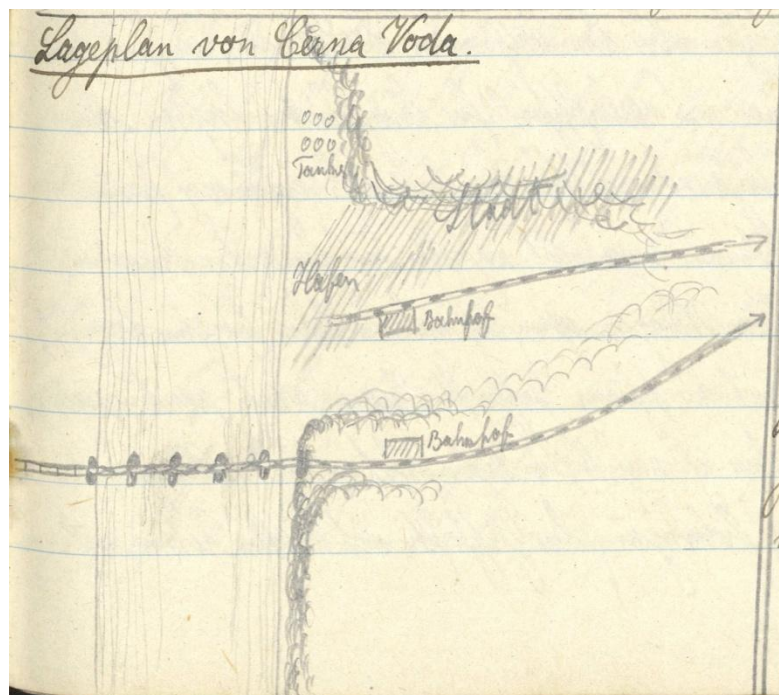 Lageplan von Cerna Voda.
Tanks
Stadt
Hafen
Bahnhof
Bahnhof